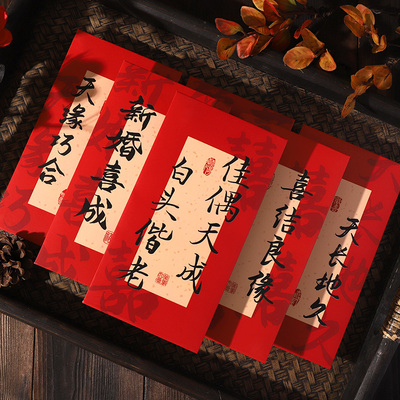 天缘巧合
新婚喜成
佳偶天成
白头偕老
喜结良缘
天长地久